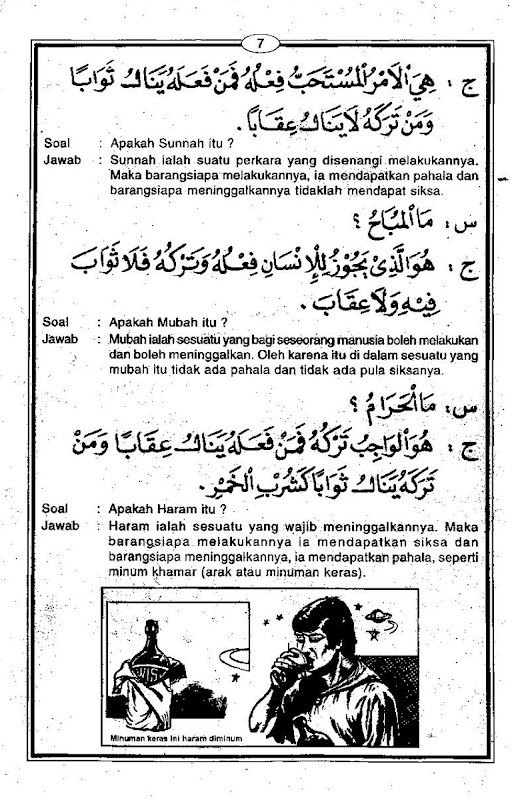 7
ج : هِيَ الْأَمْرُ الْمُسْتَحَبُّ فِعْلُهُ فَمَنْ فَعَلَهُ يَنَالُ ثَوَابًا
وَمَنْ تَرَكَهُ لَا يَنَالُ عِقَابًا.
Soal : Apakah Sunnah itu ?
Jawab : Sunnah ialah suatu perkara yang disenangi melakukannya.
Maka barangsiapa melakukannya, ia mendapatkan pahala dan
barangsiapa meninggalkannya tidaklah mendapat siksa.
س : مَا الْمُبَاحُ ؟
ج : هُوَ الَّذِيْ يَجُوْزُ لِلْإِنْسَانِ فِعْلُهُ وَتَرْكُهُ فَلَا ثَوَابَ
فِيْهِ وَلَا عِقَابَ.
Soal : Apakah Mubah itu ?
Jawab : Mubah ialah sesuatu yang bagi seseorang manusia boleh melakukan
dan boleh meninggalkan. Oleh karena itu di dalam sesuatu yang
mubah itu tidak ada pahala dan tidak ada pula siksanya.
س : مَا الْحَرَامُ ؟
ج : هُوَ الْوَاجِبُ تَرْكُهُ فَمَنْ فَعَلَهُ يَنَالُ عِقَابًا وَمَنْ
تَرَكَهُ يَنَالُ ثَوَابًا كَشُرْبِ الْخَمْرِ.
Soal : Apakah Haram itu ?
Jawab : Haram ialah sesuatu yang wajib meninggalkannya. Maka
barangsiapa melakukannya ia mendapatkan siksa dan
barangsiapa meninggalkannya, ia mendapatkan pahala, seperti
minum khamar (arak atau minuman keras).
Minuman keras ini haram diminum